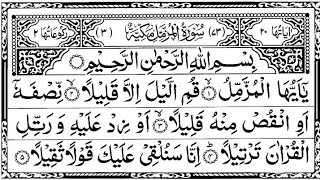 اٰيَاتُهَا ٢٠ (٧٣) سُوْرَةُ الْمُزَّمِّلِ مَكِّيَّةٌ (٣) رُكُوْعَاتُهَا ٢
بِسْمِ اللّٰهِ الرَّحْمٰنِ الرَّحِيْمِ
يٰۤاَيُّهَا الْمُزَّمِّلُ ۙ﴿۱﴾ قُمِ الَّيْلَ اِلَّا قَلِيْلًا ۙ﴿۲﴾ نِّصْفَهٗۤ
اَوِ انْقُصْ مِنْهُ قَلِيْلًا ۙ﴿۳﴾ اَوْ زِدْ عَلَيْهِ وَ رَتِّلِ
الْقُرْاٰنَ تَرْتِيْلًا ؕ﴿۴﴾ اِنَّا سَنُلْقِيْ عَلَيْكَ قَوْلًا ثَقِيْلًا ﴿۵﴾